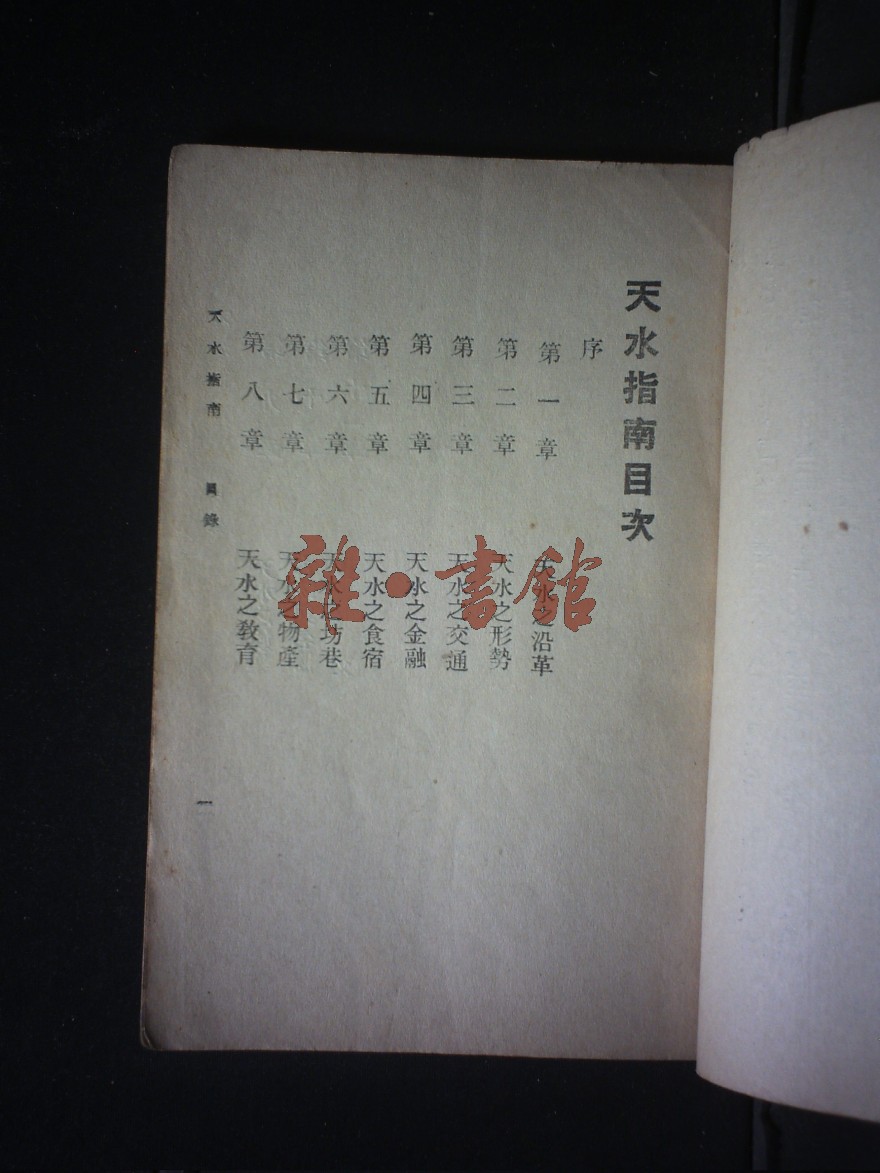 天水指南目次
序
第一章 天水之沿革
第二章 天水之形勢
第三章 天水之交通
第四章 天水之金融
第五章 天水之食宿
第六章 天水之坊巷
第七章 天水之物產
第八章 天水之教育
天水指南 目錄
一
雜·書館